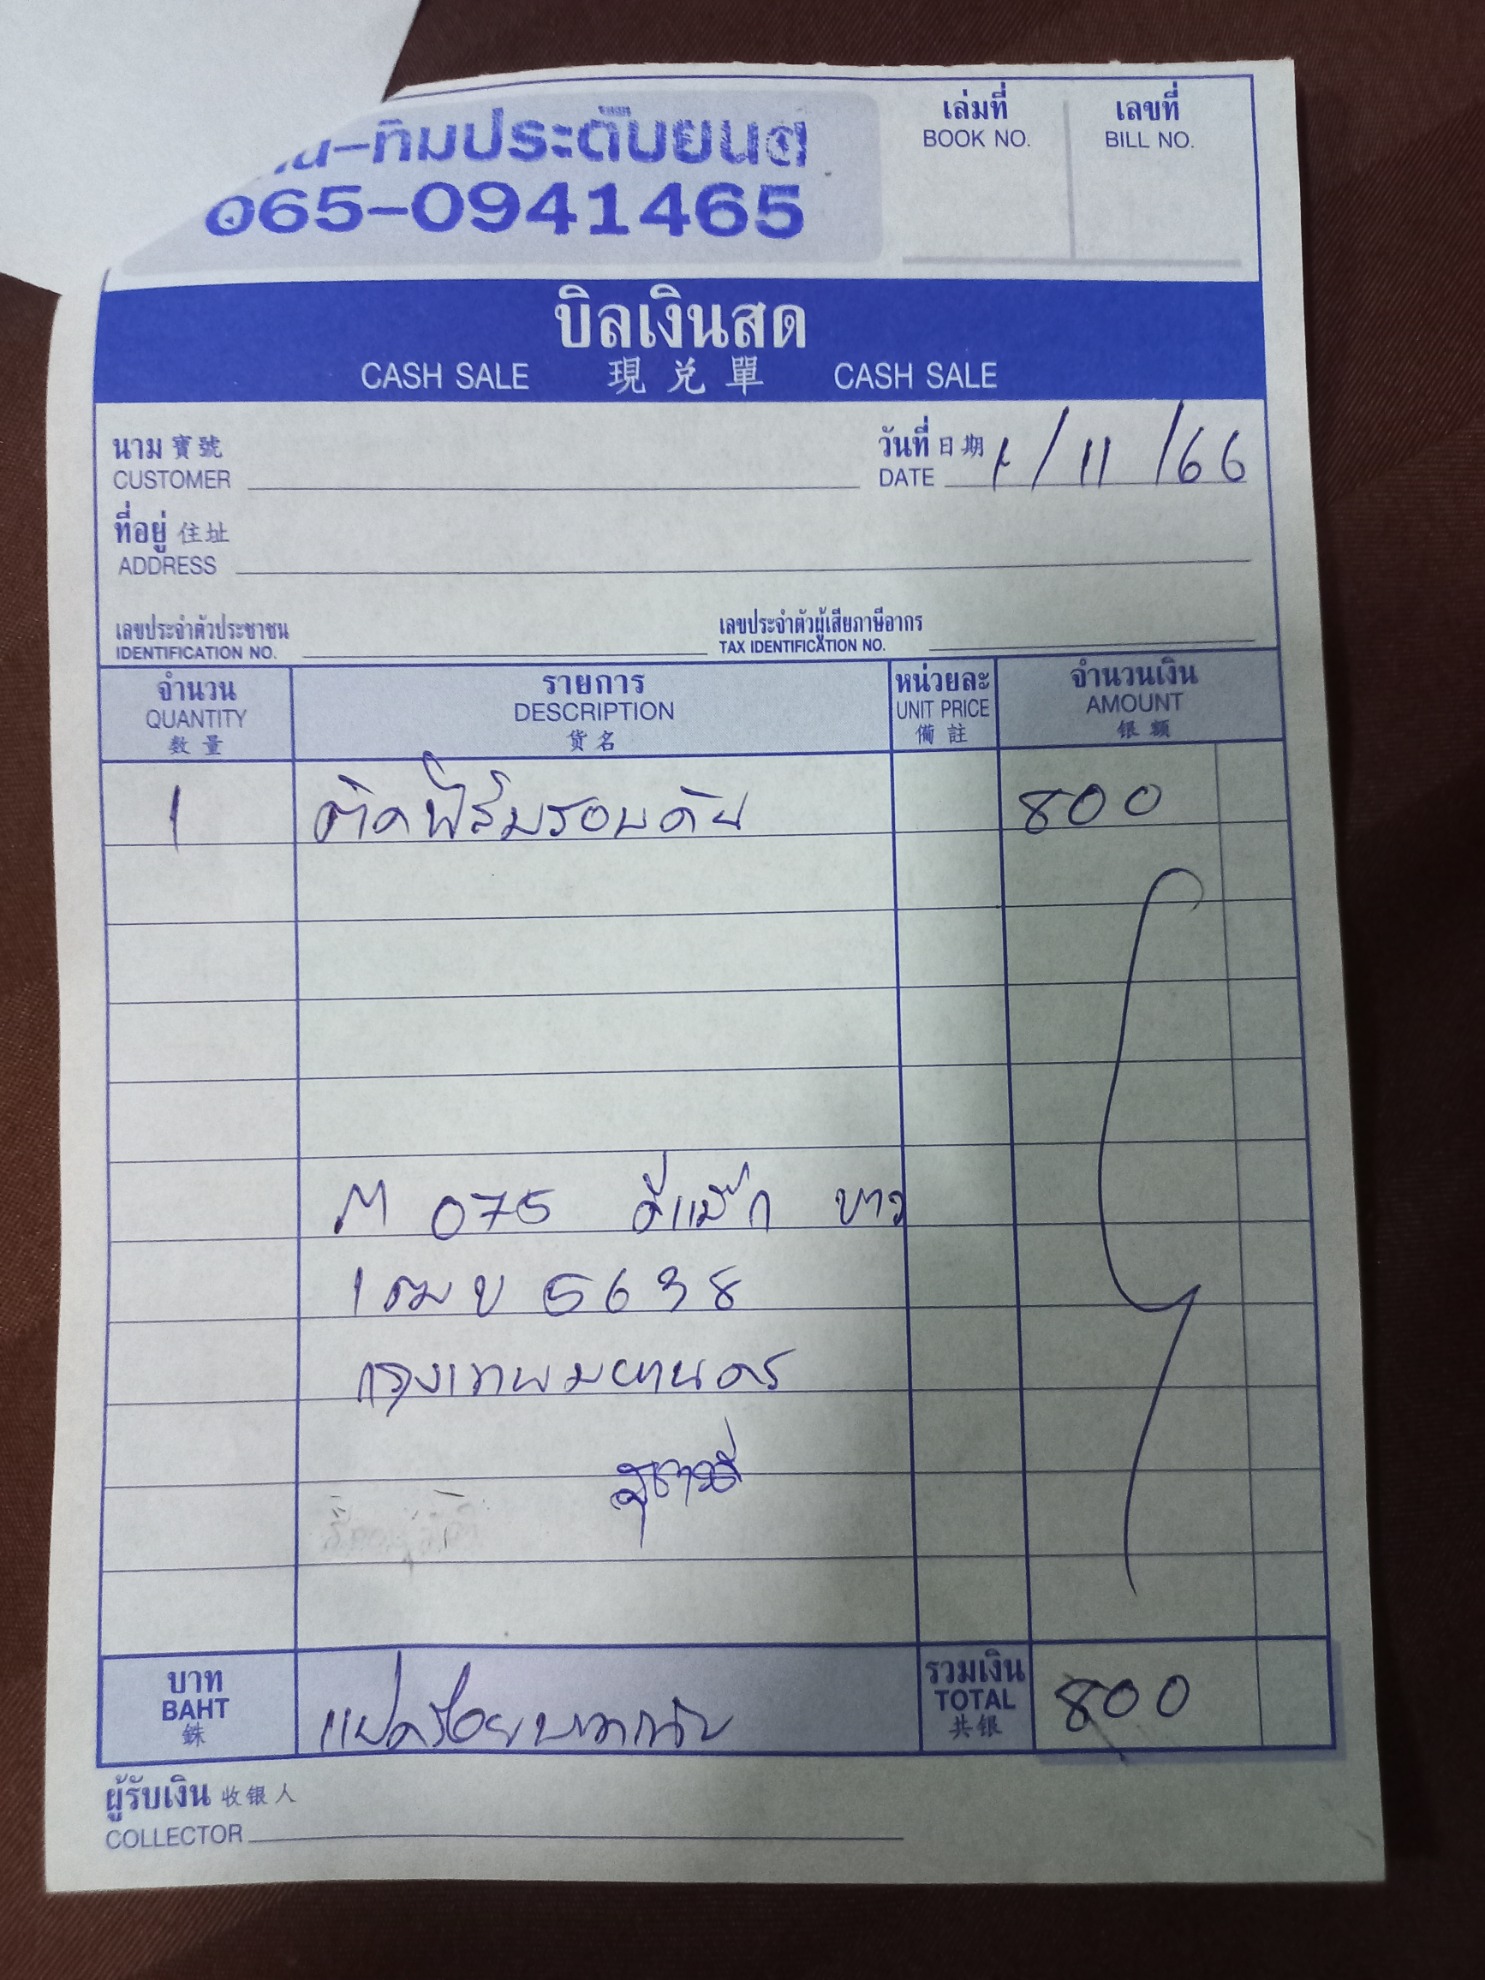 -ทีมประดับยนต์
065-0941465
เล่มที่
BOOK NO.
เลขที่
BILL NO.
บิลเงินสด
CASH SALE 現兌單 CASH SALE
นาม 寶號
CUSTOMER
วันที่ 日期 1/11/66
DATE
ที่อยู่ 住址
ADDRESS
เลขประจำตัวประชาชน
IDENTIFICATION NO.
เลขประจำตัวผู้เสียภาษีอากร
TAX IDENTIFICATION NO.
จำนวน รายการ หน่วยละ จำนวนเงิน
QUANTITY DESCRIPTION UNIT PRICE AMOUNT
数量 货名 備註 银额
1 ติดฟิล์มรอบคัน 800
M 075 ดีแม็ก ขาว
1 ฒข 5638
กรุงเทพมหานคร
บาท แปดร้อยบาทถ้วน รวมเงิน 800
BAHT TOTAL
銖 共银
ผู้รับเงิน 收银人
COLLECTOR